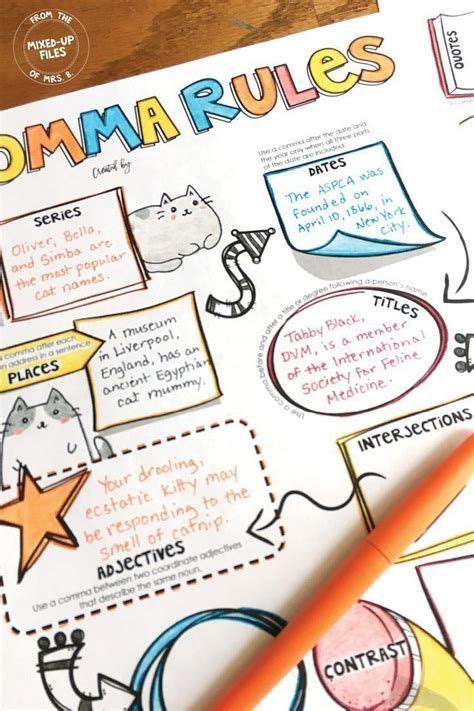 FROM THE
MIXED-UP
FILES
OF MRS. B.
OMMA RULES
Created by
QUOTES
SERIES
Oliver, Bella,
and Simba are
the most popular
cat names.
Use a comma after the date and
the year only when all three parts
of the date are included.
DATES
The ASPCA was
founded on
April 10, 1866, in
New York
City.
comma after each
an address in a sentence
PLACES
A museum
in Liverpool,
England, has an
ancient Egyptian
cat mummy.
Use a comma before and after a title or degree following a person's name
TITLES
Tabby Black,
DVM, is a member
of the International
Society for Feline
Medicine.
INTERJECTIONS
Your drooling,
ecstatic kitty may
be responding to the
smell of catnip.
ADJECTIVES
Use a comma between two coordinate adjectives
that describe the same noun.
CONTRAST